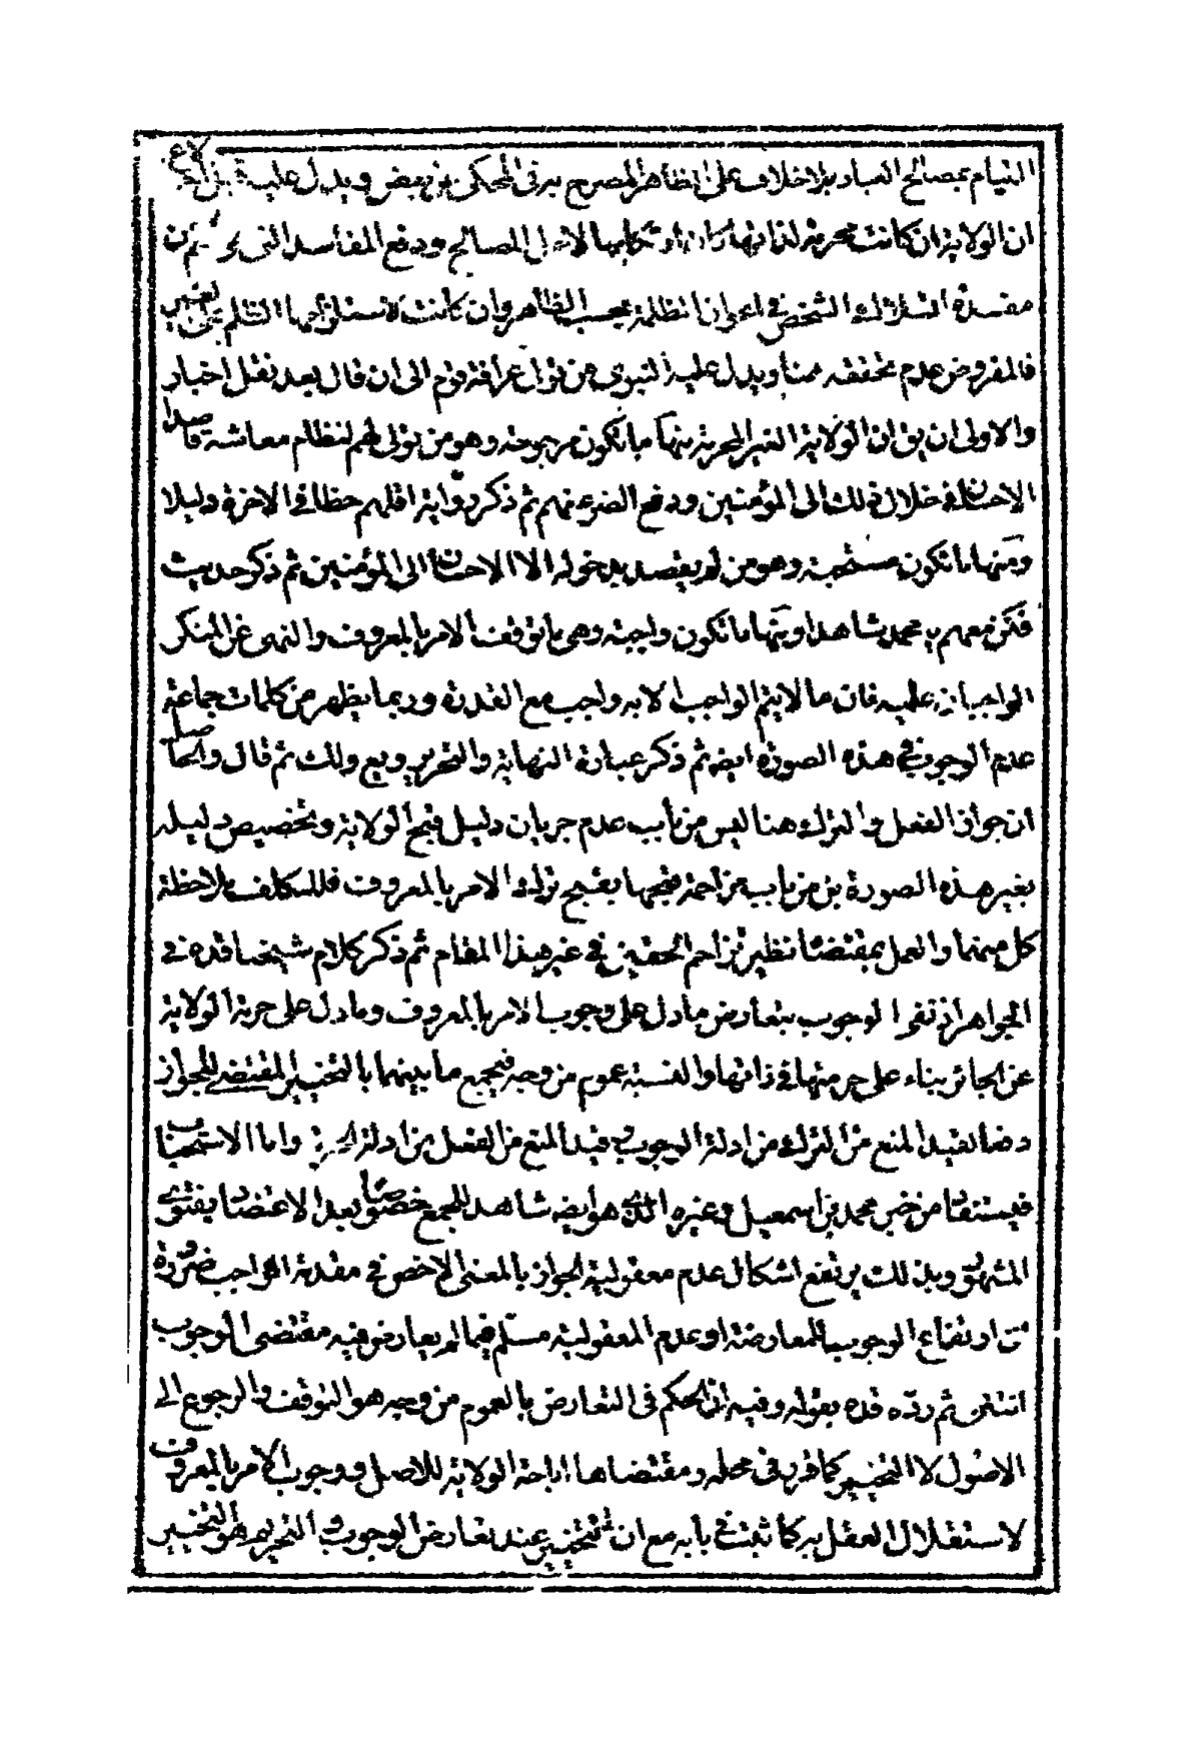 القيام بمصالح العباد بلا خلاف على الظاهر المصرح به في المحكي عن بعض ويدل عليه قبل الاجماع
ان الولاية ان كانت محرمة لذاتها كان ارتكابها لاجل المصالح ودفع المفاسد التي هي اهم من
مفسدة انسلاك الشخص في اعوان الظلمة بحسب الظاهر وان كانت لاستلزامها الظلم على الغير
فالمفروض عدم تحققه هنا ويدل عليه النبوي من تولى عرافة قوم الى ان قال بعد نقل اخبار
والاولى ان يق ان الولاية الغير المحرمة منها ما تكون مرجوحة وهو من تولى لهم لنظام معاشه قاصدا
الاحسان في خلال ذلك الى المؤمنين ودفع الضر عنهم ثم ذكر رواية اقلهم حظا في الاخرة دليلا
ومنها ما تكون مستحبة وهو من لم يقصد بدخوله الا الاحسان الى المؤمنين ثم ذكر حديث
فكن معهم يا محمد شاهدا ومنها ما تكون واجبة وهي ما توقف الامر بالمعروف والنهي عن المنكر
الواجبان عليه فان ما لا يتم الواجب الا به واجب مع القدرة وربما يظهر من كلمات جماعة
عدم الوجوب في هذه الصورة ايضا ثم ذكر عبارة النهاية والتحرير ويع ولك ثم قال والحاصل
ان جواز الفعل والترك هنا ليس من باب عدم جريان دليل قبح الولاية وتخصيص دليله
بغير هذه الصورة بل من باب مزاحمة قبحها بقبيح ترك الامر بالمعروف فللمكلف ملاحظة
كل منهما والعمل بمقتضاه نظير تزاحم الحقين في غير هذا المقام ثم ذكر كلام شيخنا قده في
الجواهر اذ تقوا الوجوب بتعارض ما دل على وجوب الامر بالمعروف وما دل على حرمة الولاية
عن الجائر بناء على حرمتها في ذاتها والنسبة عموم من وجه فيجمع ما بينهما بالتخيير المقتضي للجواز
دفعا لقيد المنع من الترك من ادلة الوجوب وقيد المنع من الفعل من ادلة الحرمة واما الاستحباب
فيستفاد من خبر محمد بن اسمعيل وغيره الذي هو ايضه شاهد للجمع خصوصا بعد الاعتضاد بفتوى
المشهور وبذلك يرتفع اشكال عدم معقولية الجواز بالمعنى الاخص في مقدمة الواجب ضرورة
ارتفاع الوجوب بالمعارضة او عدم المعقولية مسلم فيما لم يعارض فيه مقتضى الوجوب
انتهى ثم رده قده بقوله وفيه ان الحكم في التعارض بالعموم من وجه هو التوقف والرجوع الى
الاصول لا التخيير كما قرر في محله ومقتضاها اباحة الولاية للاصل ووجوب الامر بالمعروف
لاستقلال العقل به كما ثبت في بابه مع ان التخيير عند تعارض الوجوب والتحريم هو التخيير